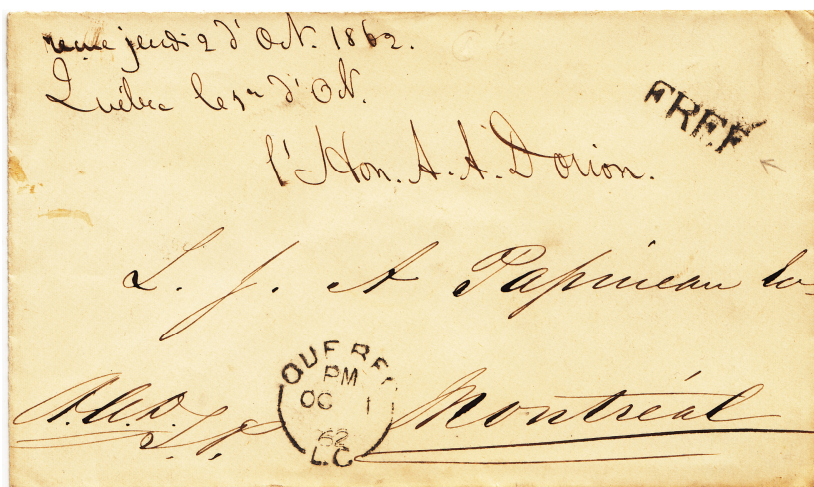 reçue jeudi 2 d' Oct. 1862.
Québec le 1er d' Oct.
FREE
l' Hon. A. A. Dorion.
L. J. A Papineau
QUEBEC
PM
OC 1
62
L.C
Montréal